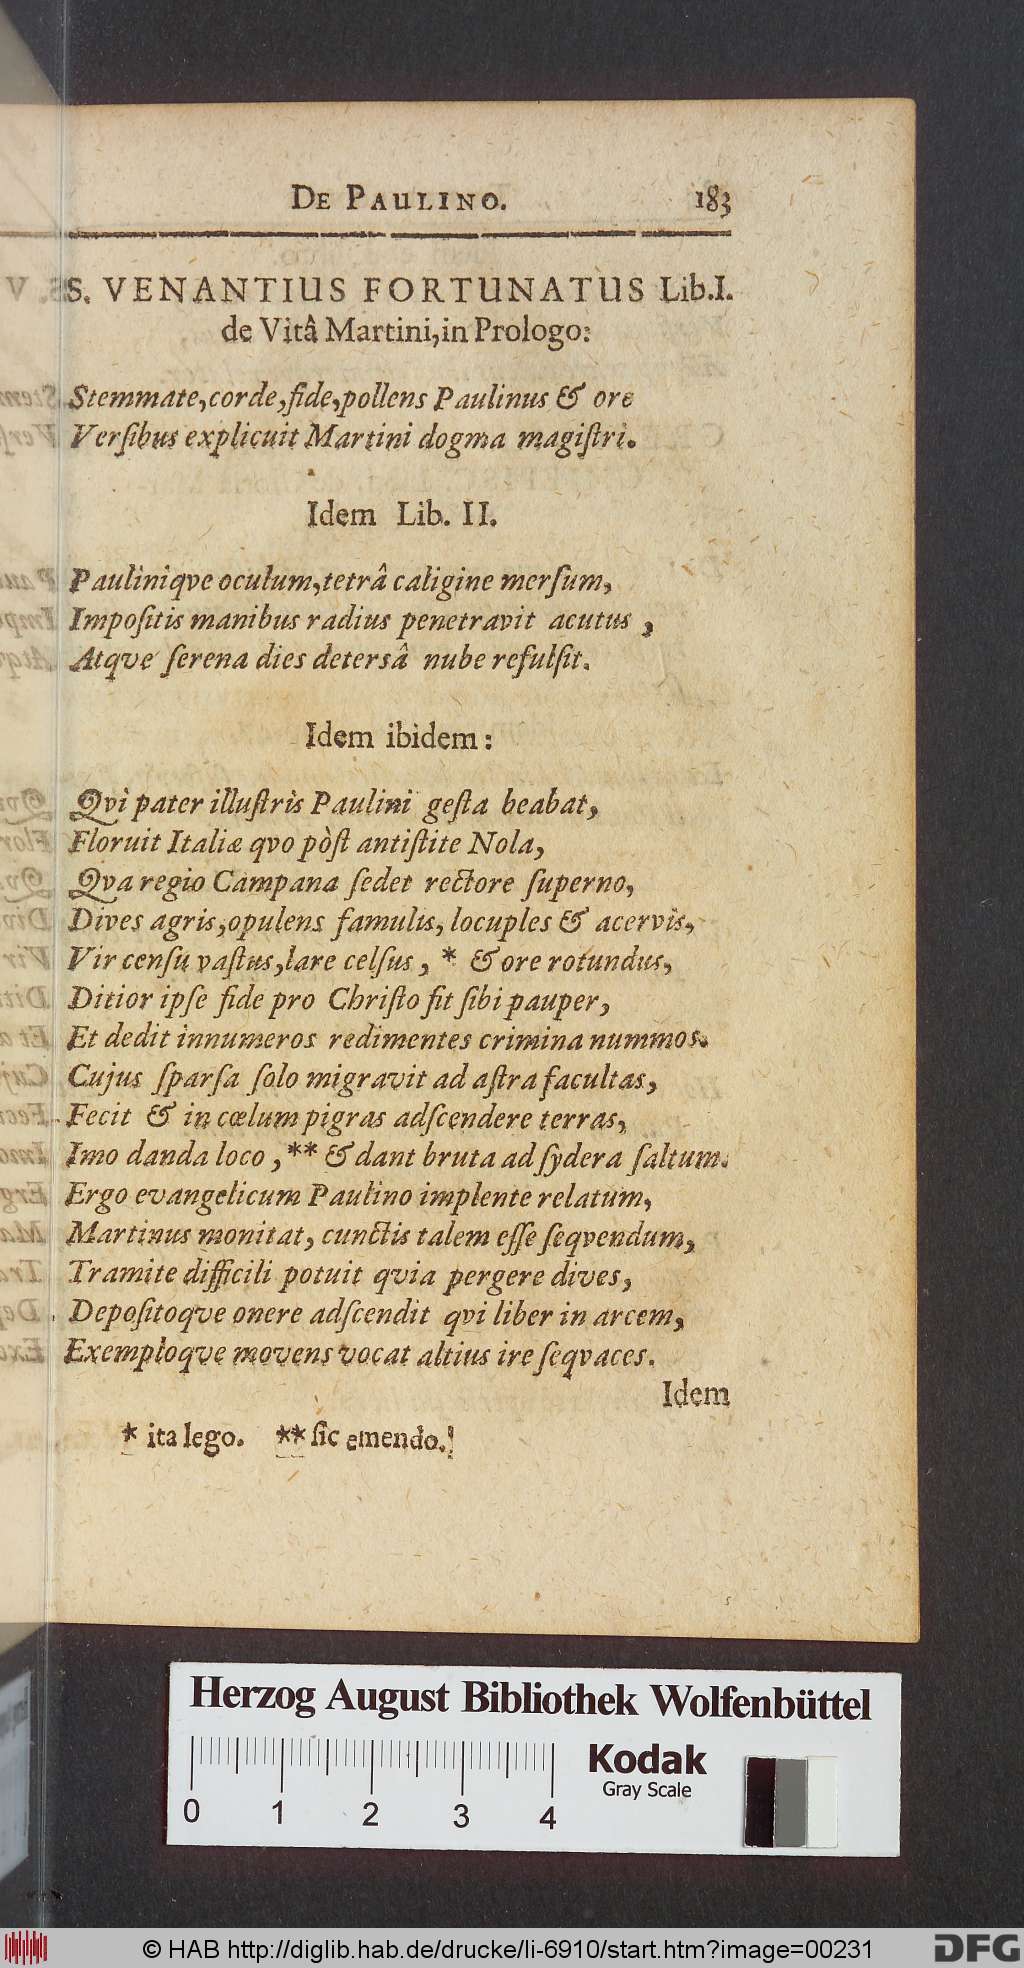 DE PAULINO. 183
S. VENANTIUS FORTUNATUS Lib. I.
de Vitâ Martini, in Prologo:
Stemmate, corde, fide, pollens Paulinus & ore
Verſibus explicuit Martini dogma magiſtri.
Idem Lib. II.
Pauliniqve oculum, tetrâ caligine merſum,
Impoſitis manibus radius penetravit acutus,
Atqve ſerena dies deterſâ nube refulſit.
Idem ibidem:
Qvi pater illuſtris Paulini geſta beabat,
Floruit Italiæ qvo pòſt antiſtite Nola,
Qva regio Campana ſedet rectore ſuperno,
Dives agris, opulens famulis, locuples & acervis,
Vir cenſu vaſtus, lare celſus, * & ore rotundus,
Ditior ipſe fide pro Chriſto fit ſibi pauper,
Et dedit innumeros redimentes crimina nummos.
Cujus ſparſa ſolo migravit ad aſtra facultas,
Fecit & in cœlum pigras adſcendere terras,
Imo danda loco, ** & dant bruta ad ſydera ſaltum.
Ergo evangelicum Paulino implente relatum,
Martinus monitat, cunctis talem eſſe ſeqvendum,
Tramite difficili potuit qvia pergere dives,
Depoſitoqve onere adſcendit qvi liber in arcem,
Exemploqve movens vocat altius ire ſeqvaces.
Idem
* ita lego. ** ſic emendo.
Herzog August Bibliothek Wolfenbüttel
Kodak
Gray Scale
0 1 2 3 4
© HAB http://diglib.hab.de/drucke/li-6910/start.htm?image=00231
DFG